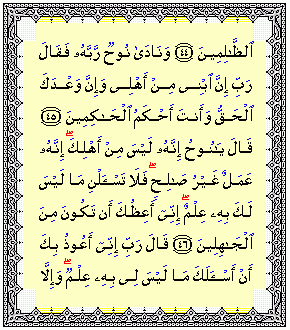 ٱلظَّـٰلِمِينَ ﴿٤٤﴾ وَنَادَىٰ نُوحٌ رَّبَّهُۥ فَقَالَ
رَبِّ إِنَّ ٱبْنِى مِنْ أَهْلِى وَإِنَّ وَعْدَكَ
ٱلْحَقُّ وَأَنتَ أَحْكَمُ ٱلْحَـٰكِمِينَ ﴿٤٥﴾
قَالَ يَـٰنُوحُ إِنَّهُۥ لَيْسَ مِنْ أَهْلِكَ ۖ إِنَّهُۥ
عَمَلٌ غَيْرُ صَـٰلِحٍ ۖ فَلَا تَسْـَٔلْنِ مَا لَيْسَ
لَكَ بِهِۦ عِلْمٌ ۖ إِنِّىٓ أَعِظُكَ أَن تَكُونَ مِنَ
ٱلْجَـٰهِلِينَ ﴿٤٦﴾ قَالَ رَبِّ إِنِّىٓ أَعُوذُ بِكَ
أَنْ أَسْـَٔلَكَ مَا لَيْسَ لِى بِهِۦ عِلْمٌ ۖ وَإِلَّا